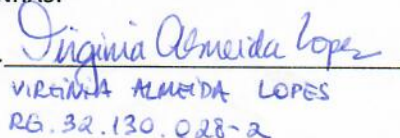 Virginia Almeida Lopes
VIRGINIA ALMEIDA LOPES
RG. 32.130.028-2